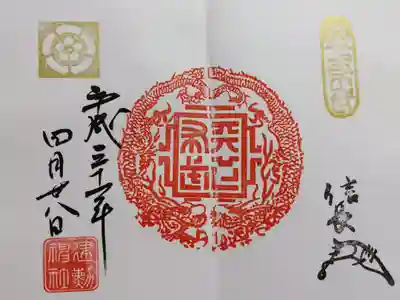 信長
天下布武
平成三十一年
四月廿八日
建勲
神社